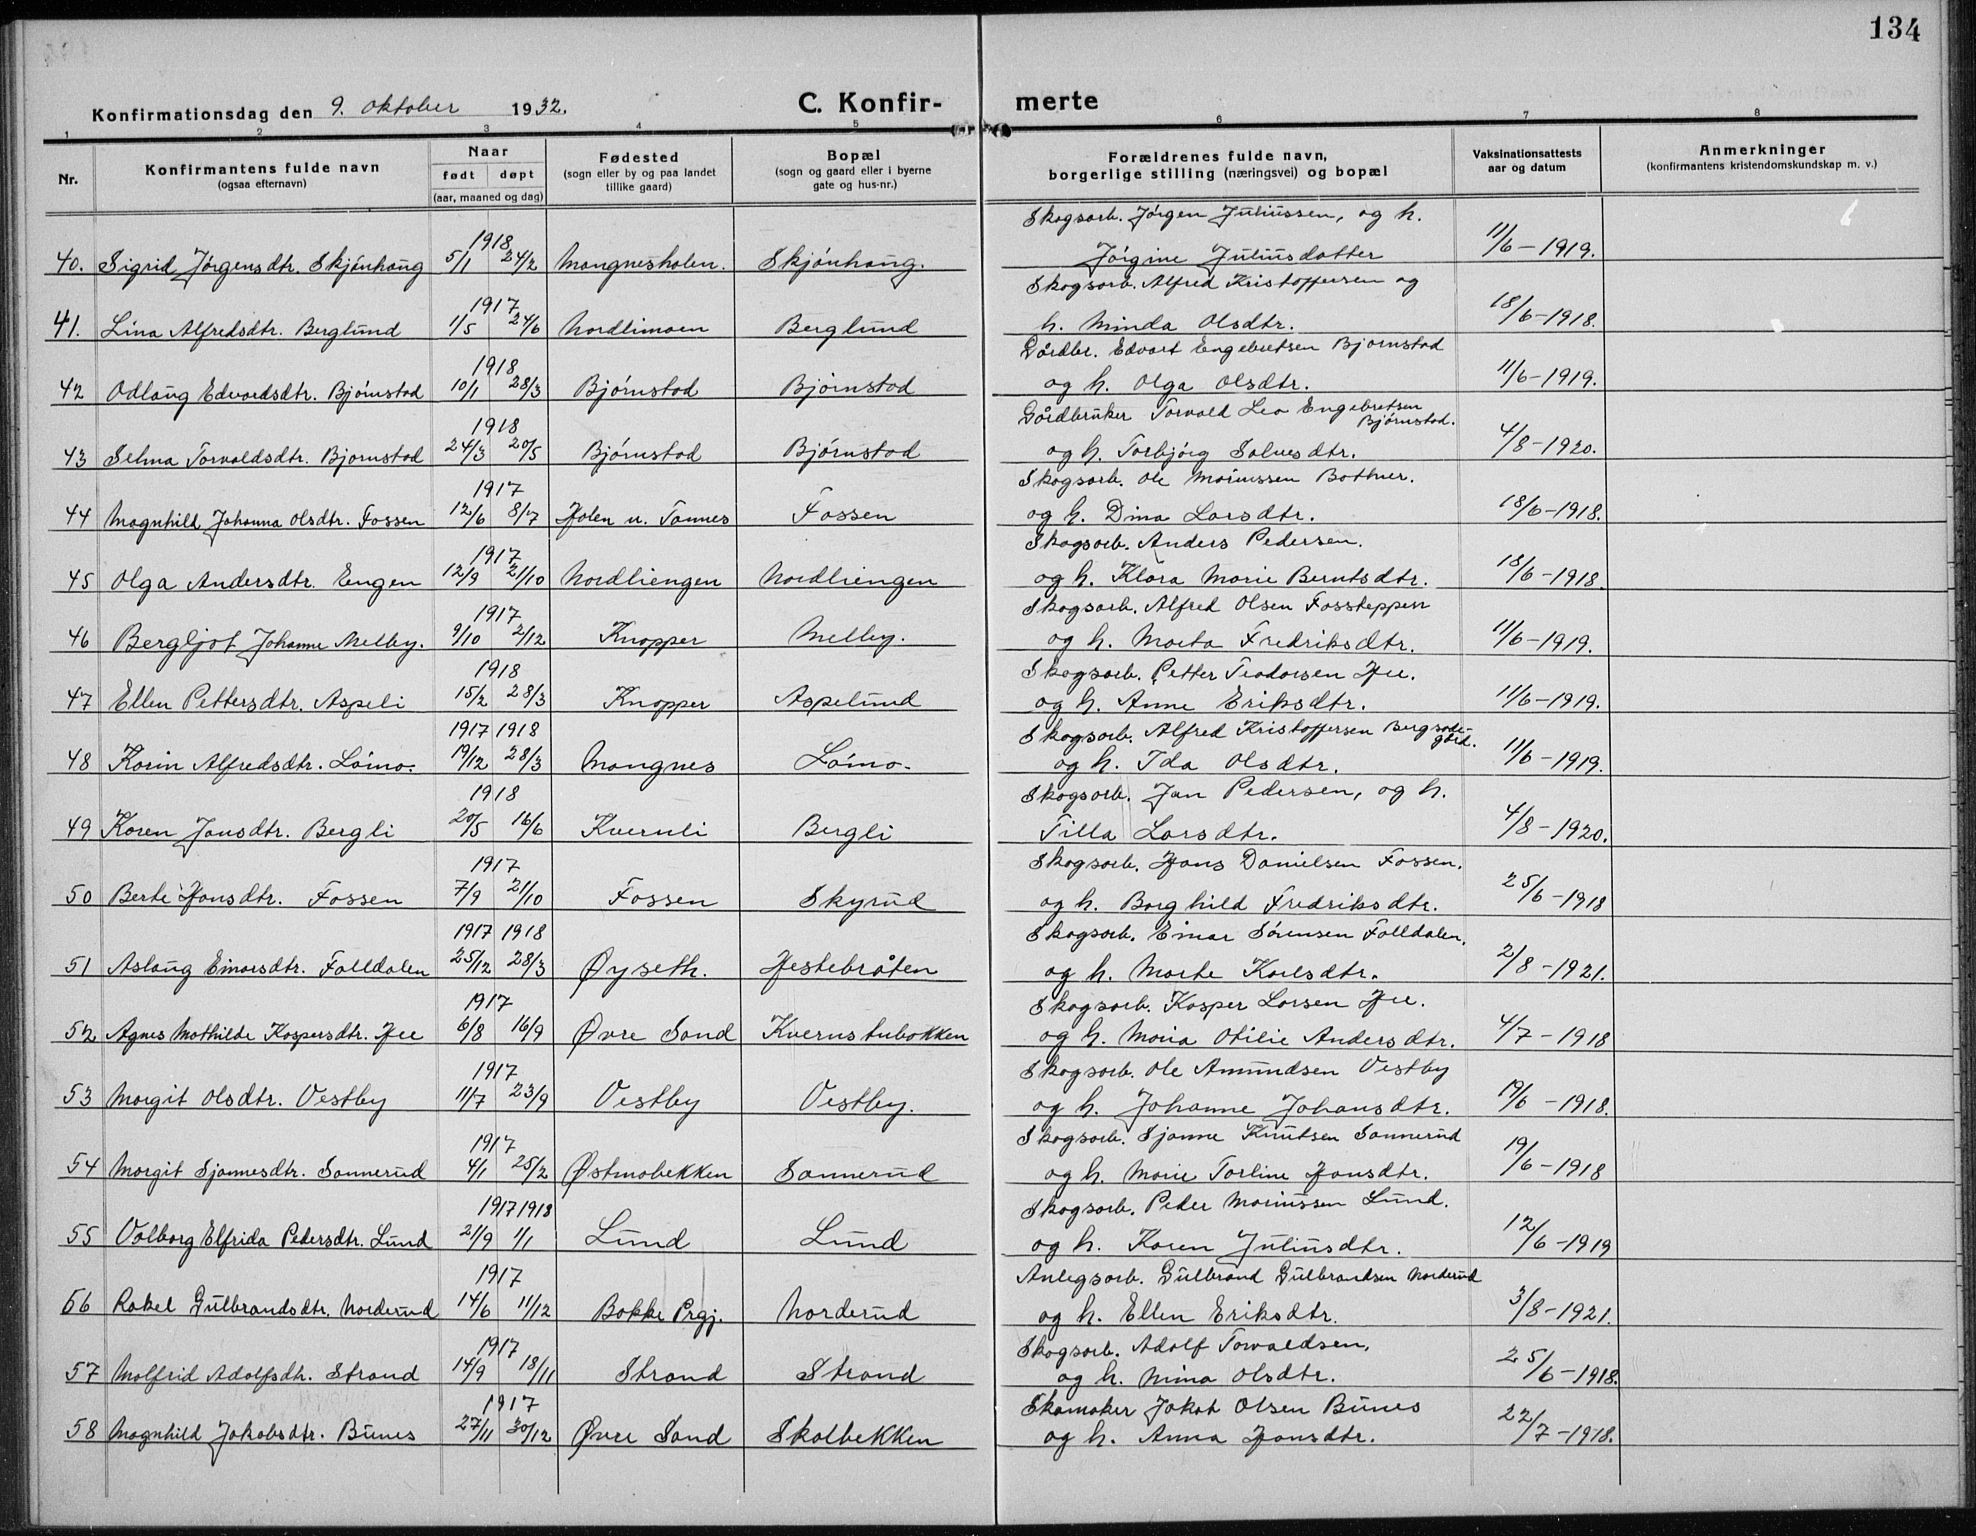 134
Konfirmationsdag den 9. oktober 1932.
C. Konfir-
merte
1 2 3 4 5 6 7 8
Nr.
Konfirmantens fulde navn
(ogsaa efternavn)
Naar
født døpt
(aar, maaned og dag)
Fødested
(sogn eller by og paa landet
tillike gaard)
Bopæl
(sogn og gaard eller i byerne
gate og hus-nr.)
Forældrenes fulde navn,
borgerlige stilling (næringsvei) og bopæl
Vaksinationsattests
aar og datum
Anmerkninger
(konfirmantens kristendomskundskap m. v.)
1918 Skogsarb. Jørgen Juliussen, og h.
40. Sigrid Jørgensdtr. Skjønhaug 5/1 24/2 Mangnesholen. Skjønhaug. Jørgine Juliusdatter 11/6-1919.
1917 Skogsarb. Alfred Kristoffersen og
41. Lina Alfredsdtr. Berglund 1/5 24/6 Nordlimoen Berglund h. Minda Olsdtr. 18/6-1918.
1918 Gårdbr. Edvart Engebretsen Bjørnstad
42 Odlaug Edvardsdtr. Bjørnstad 10/1 28/3 Bjørnstad Bjørnstad og h. Olga Olsdtr. 11/6-1919.
1918 Gårdbruker Torvald Leo Engebretsen Bjørnstad.
43 Selma Torvaldsdtr. Bjørnstad 24/3 20/5 Bjørnstad Bjørnstad og h. Torbjørg Solvesdtr. 4/8-1920.
1917 Skogsarb. Ole Marinussen Bottner.
44 Magnhild Johanna Olsdtr. Fossen 12/6 8/7 Holen u. Tannes Fossen og h. Dina Larsdtr. 18/6-1918.
1917 Skogsarb. Anders Pedersen.
45 Olga Andersdtr. Engen 12/9 21/10 Nordliengen Nordliengen og h. Klara Marie Berntsdtr. 18/6-1918.
1917 Skogsarb. Alfred Olsen Fossteppen
46 Bergljot Johanne Melby. 9/10 2/12 Knapper Melby. og h. Marta Fredriksdtr. 11/6-1919.
1918 Skogsarb. Petter Teodorsen Hee.
47 Ellen Pettersdtr. Aspeli 15/2 28/3 Knapper Aspelund og h. Anne Eriksdtr. 11/6-1919.
1917 1918 Skogsarb. Alfred Kristoffersen
48 Karin Alfredsdtr. Lømo. 19/12 28/3 Mangnes Lømo. og h. Ida Olsdtr. 11/6-1919.
1918 Skogsarb. Jan Pedersen, og h.
49 Karen Jansdtr. Bergli 20/5 16/6 Kvernli Bergli Tilla Larsdtr. 4/8-1920.
1917 Skogsarb. Hans Danielsen Fossen.
50 Berte Hansdtr. Fossen 7/9 21/10 Fossen Skyrud og h. Borghild Fredriksdtr. 25/6-1918
1917 1918 Skogsarb. Einar Sørensen Falldalen.
51 Aslaug Einarsdtr. Falldalen 25/12 28/3 Øyseth. Hestebråten og h. Marte Karlsdtr. 2/8-1921.
1917 Skogsarb. Kasper Larsen Hee.
52 Agnes Mathilde Kaspersdtr. Hee 6/8 16/9 Øvre Sand Kvernstubakken og h. Maria Otilie Andersdtr. 4/7-1918
1917 Skogsarb. Ole Amundsen Vestby
53 Margit Olsdtr. Vestby 11/7 23/9 Vestby Vestby. og h. Johanne Johansdtr. 19/6-1918.
1917 Skogsarb. Sjanne Knutsen Sannerud
54 Margit Sjannesdtr. Sannerud 4/1 25/2 Østmobekken Sannerud og h. Marie Torline Hansdtr. 19/6-1918
1917 1918 Skogsarb. Peder Marinussen Lund.
55 Valborg Elfrida Pedersdtr. Lund 21/9 1/1 Lund Lund og h. Karen Juliusdtr. 12/6-1919
1917 Anlegsarb. Gulbrand Gulbrandsen Norderud
56 Rakel Gulbrandsdtr. Norderud 14/6 11/12 Bakke Prgj. Norderud og h. Ellen Eriksdtr. 3/8-1921.
1917 Skogsarb. Adolf Torvaldsen.
57 Malfrid Adolfsdtr. Strand 14/9 18/11 Strand Strand og h. Mina Olsdtr. 25/6-1918.
1917 Skomaker Jakob Olsen Bunes
58 Magnhild Jakobsdtr. Bunes 27/11 30/12 Øvre Sand Skalbekken og h. Anna Hansdtr. 22/7-1918.